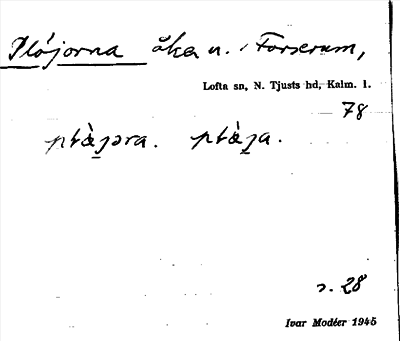 Plöjorna åker n. i Forserum,
Lofta sn, N. Tjusts hd, Kalm. l.
78
s. 28
Ivar Modéer 1945